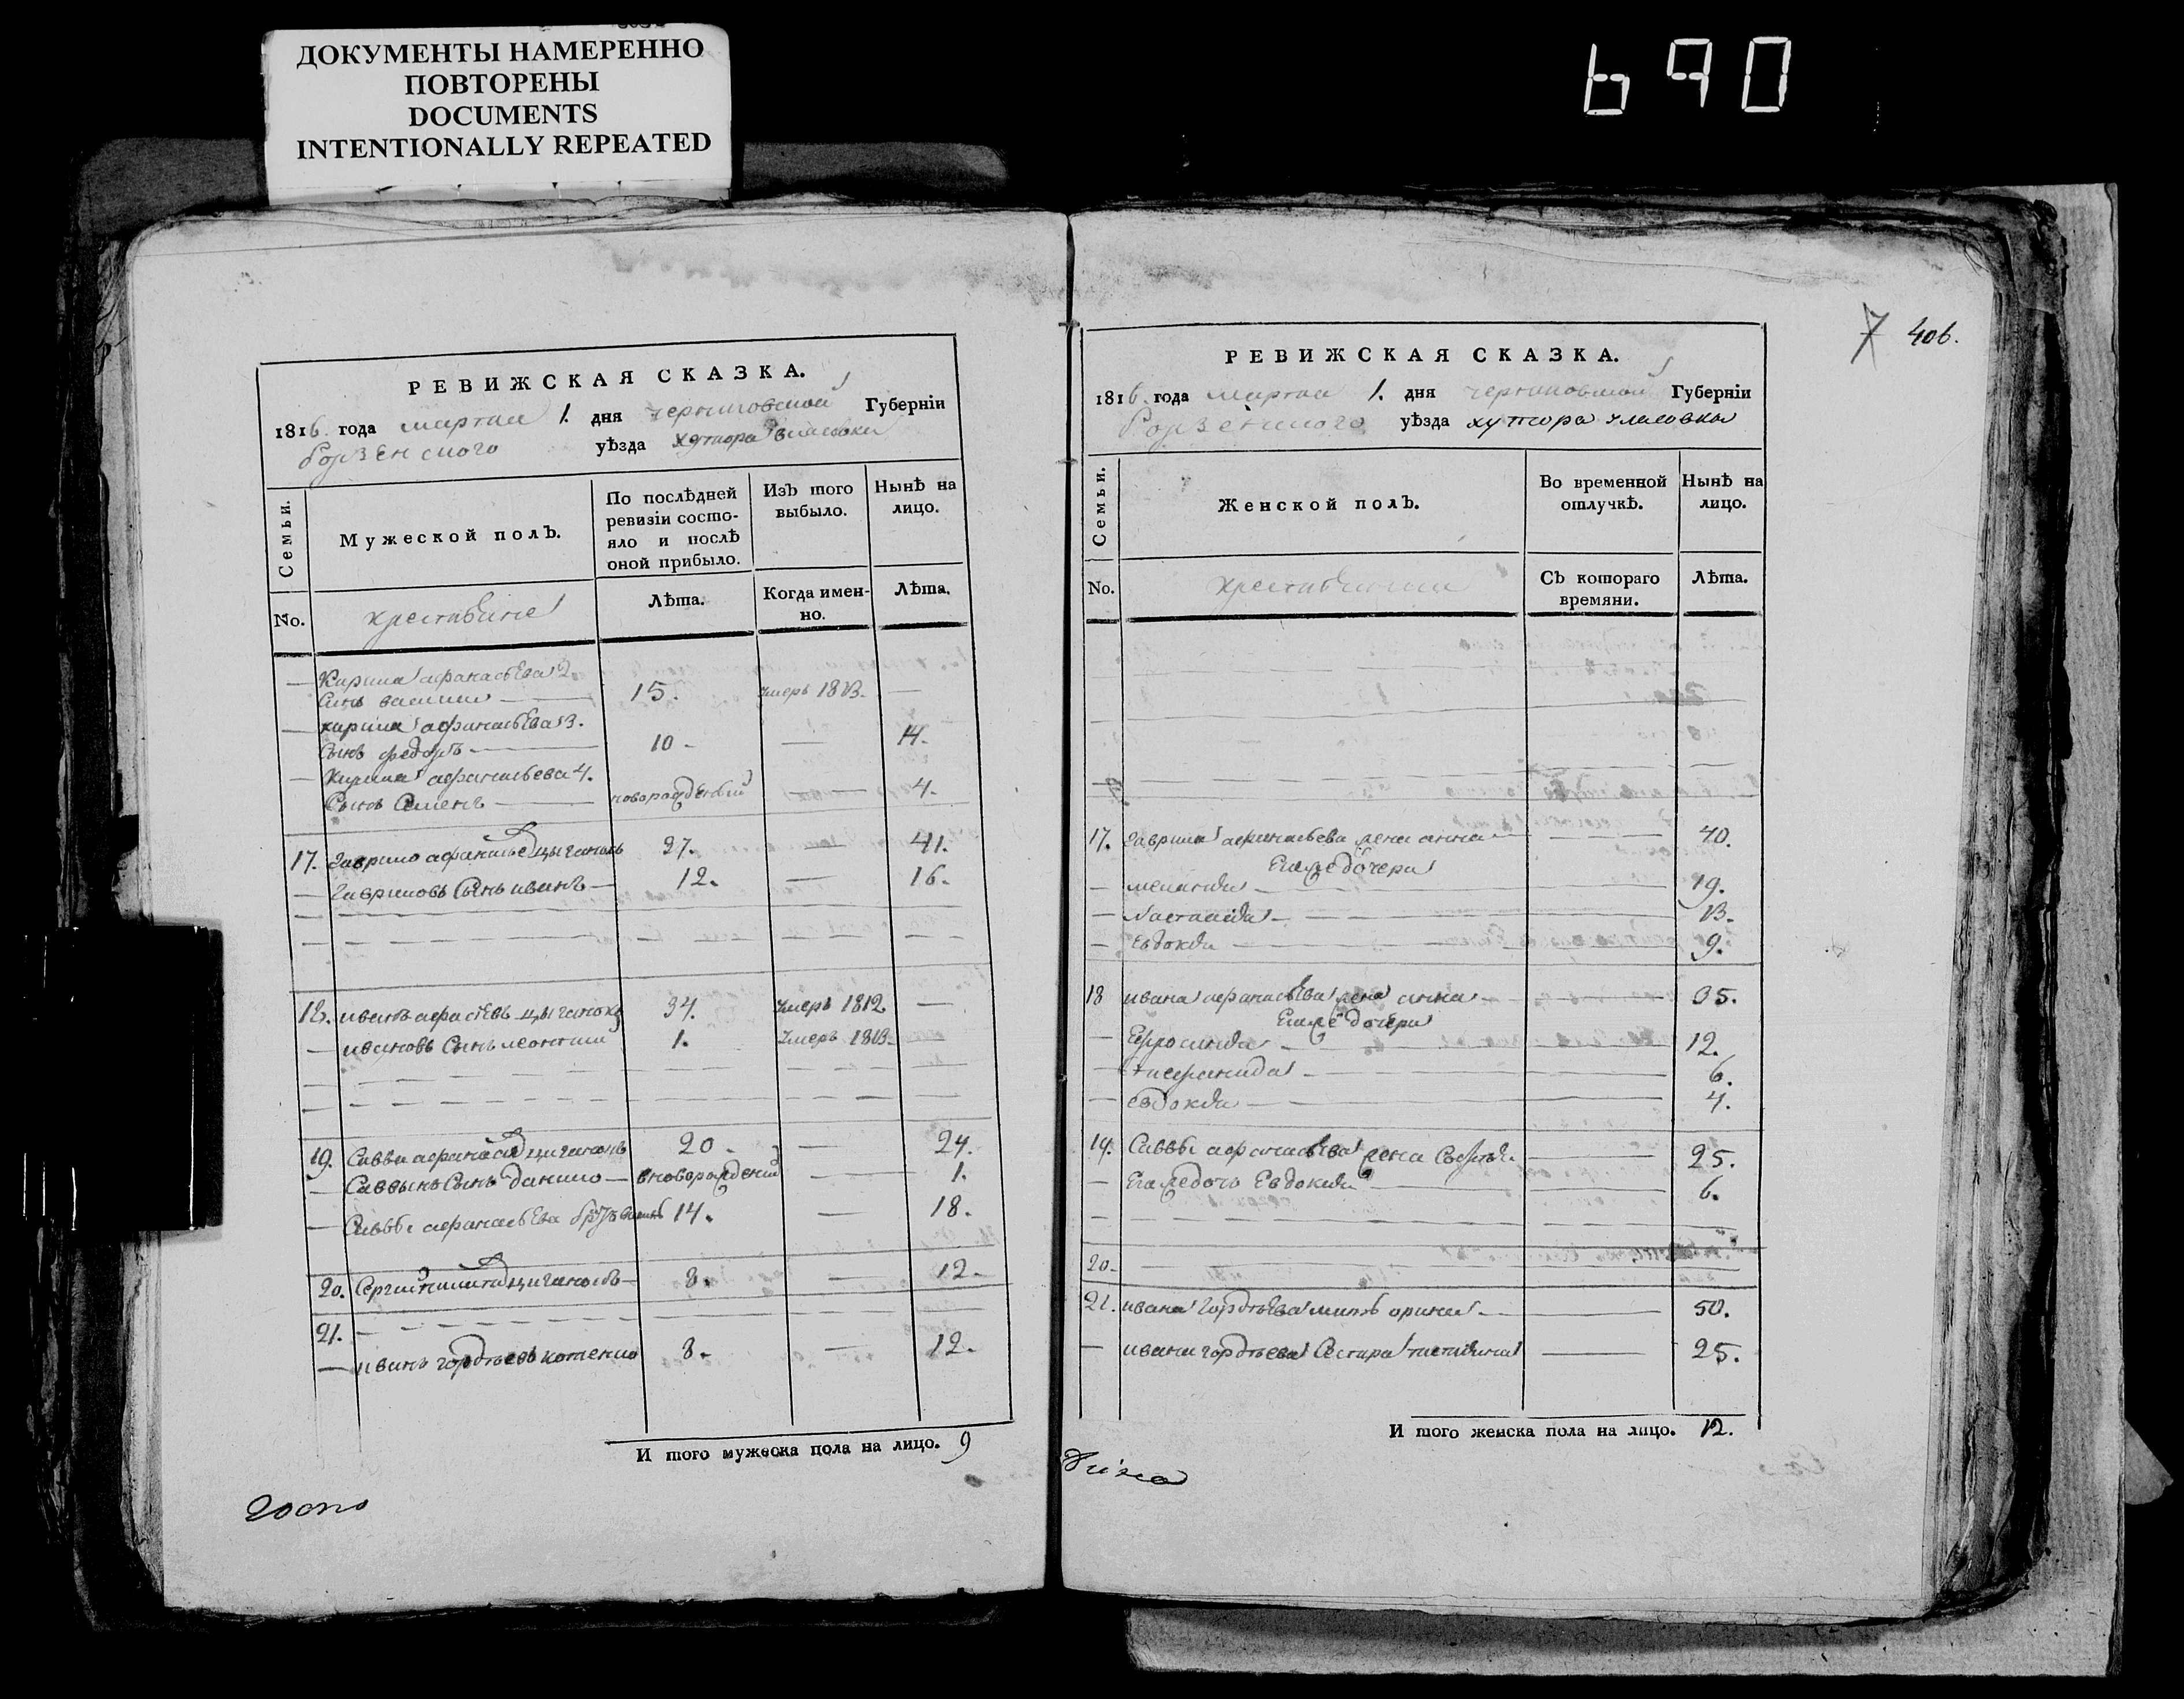 ДОКУМЕНТЫ НАМЕРЕННО
ПОВТОРЕНЫ
DOCUMENTS
INTENTIONALLY REPEATED
690
РЕВИЖСКАЯ СКАЗКА.
1816 года марта 1. дня черниговской Губернiи
борзенского уѣзда хутора
Семьи.
Мужеской полъ.
По послѣдней ревизiи состояло и послѣ оной прибыло.
Изъ того выбыло.
Нынѣ на лицо.
No.
крестьяне
Лѣта.
Когда именно.
Лѣта.
— Кирила афанасьева 2.
Сынъ василии — 15. умеръ 1813. —
— кирила афанасьева 3.
Сынъ федоръ — 10 — — 14.
— Кирила афанасьева 4.
Сынъ Семенъ — новорожденый — 4.
17. гаврило афанасьев цыганокъ 27. — 41.
— гавриловъ Сынъ иванъ — 12. — 16.
18. иванъ цыганокъ 34. умеръ 1812. —
— ивановъ Сынъ леонтии 1. умеръ 1813. —
19. Савва афанасиев циганокъ 20. — 24.
— Саввынъ Сынъ данило — новорожденій — 1.
— Саввы афанасьева братъ 14. — 18.
20. Сергий циганокъ — 8. — 12.
21.
— иванъ гордѣевъ котенко 8. — 12.
И того мужеска пола на лицо. 9
7 406.
РЕВИЖСКАЯ СКАЗКА.
1816. года марта 1. дня черниговской Губернiи
Борзенского уѣзда хутора
Семьи.
Женской полъ.
Во временной отлучкѣ.
Нынѣ на лицо.
No.
Съ котораго времяни.
Лѣта.
17. гаврила афанасьева жена анна — 40.
Егоже дочери
— мелания — 19.
— Настасия — 13.
— Евдокия — 9.
18 ивана афанасьева жена анна — 35.
Егоже дочери
— Ефросиния — 12.
— 6.
— евдокия — 4.
19. Саввы афанасьева жена — 25.
— Егоже дочь Евдокия — 6.
20.
21. ивана гордѣева мать орина — 50.
— ивана гордѣева Сестра татияна — 25.
И того женска пола на лицо. 12.